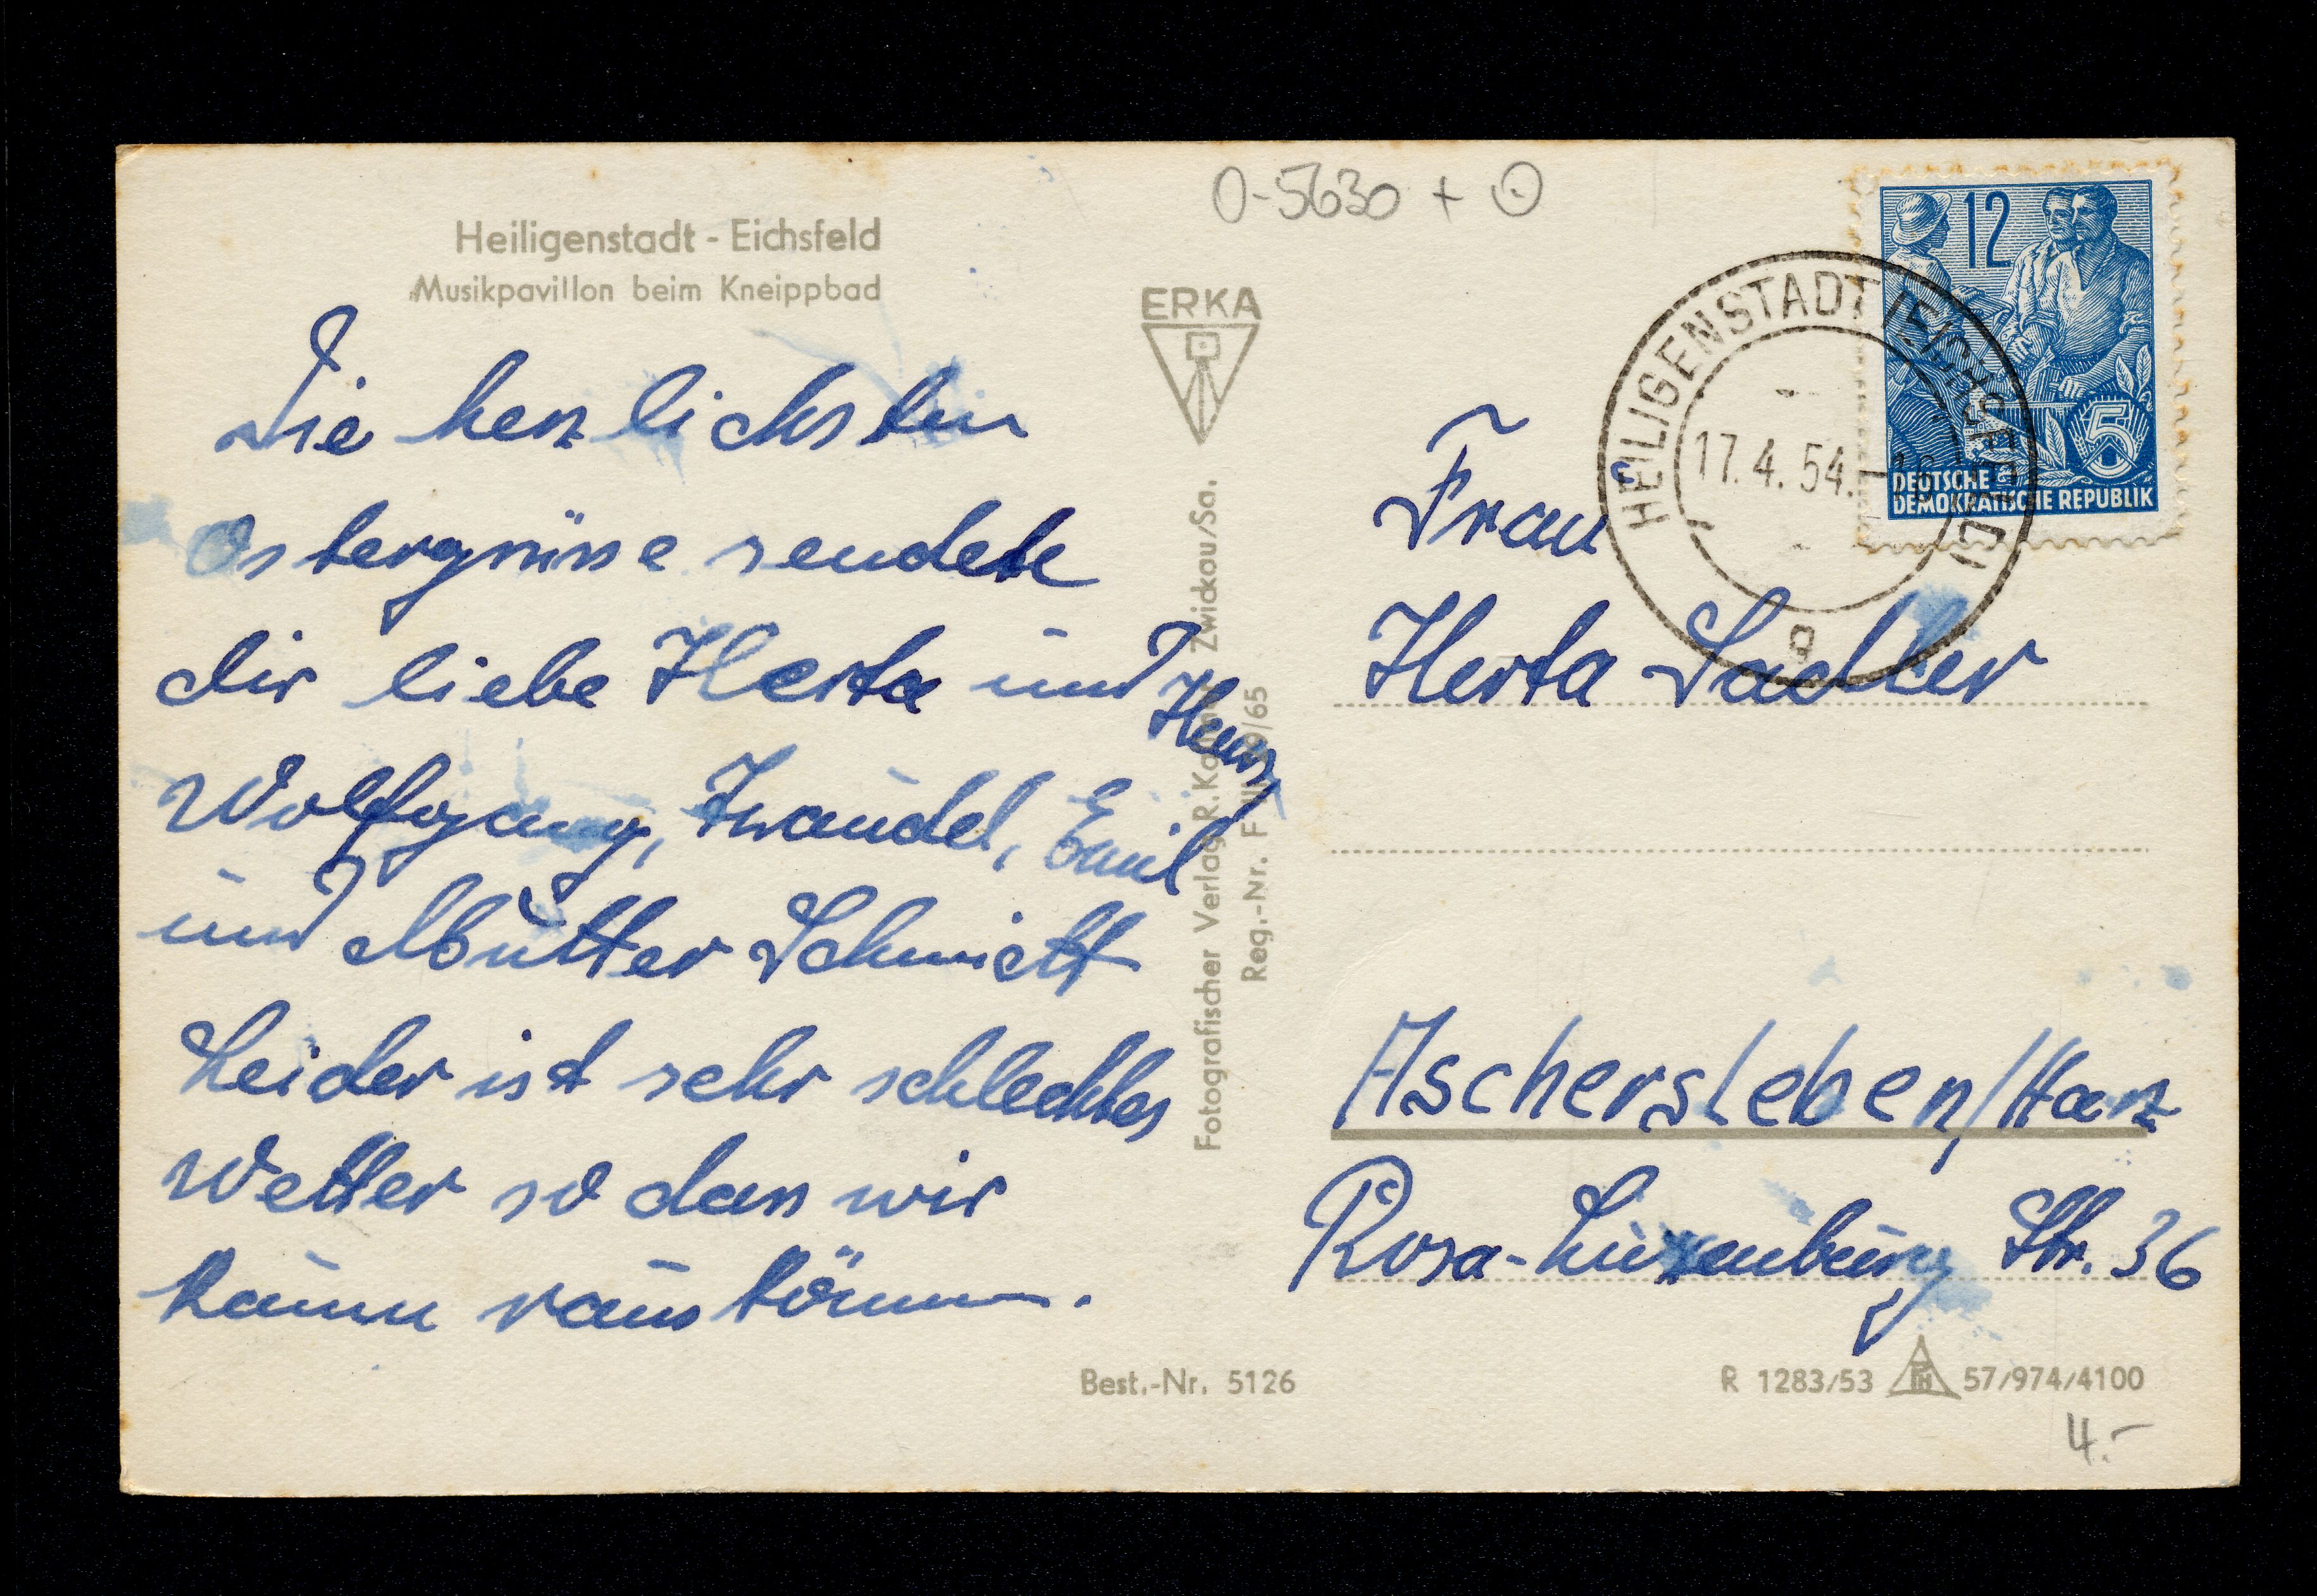 O-5630 + ⊙
Heiligenstadt - Eichsfeld
Musikpavillon beim Kneippbad
Die herzlichsten
Ostergrüsse sendet
dir liebe Herta und Heinz
Wolfgang, Traudel, Emil
und Mutter Schmidt
Leider ist sehr schlechtes
Wetter so dass wir
kaum raus können.
ERKA
Fotografischer Verlag R. Zwickau/Sa.
Reg.-Nr. /65
Best.-Nr. 5126
12
5
DEUTSCHE
DEMOKRATISCHE REPUBLIK
HEILIGENSTADT (EICHSFELD)
17.4.54.
a
Frau
Herta Sadler
Aschersleben/Harz
Rosa-Luxenburg Str. 36
R 1283/53 57/974/4100
4.-